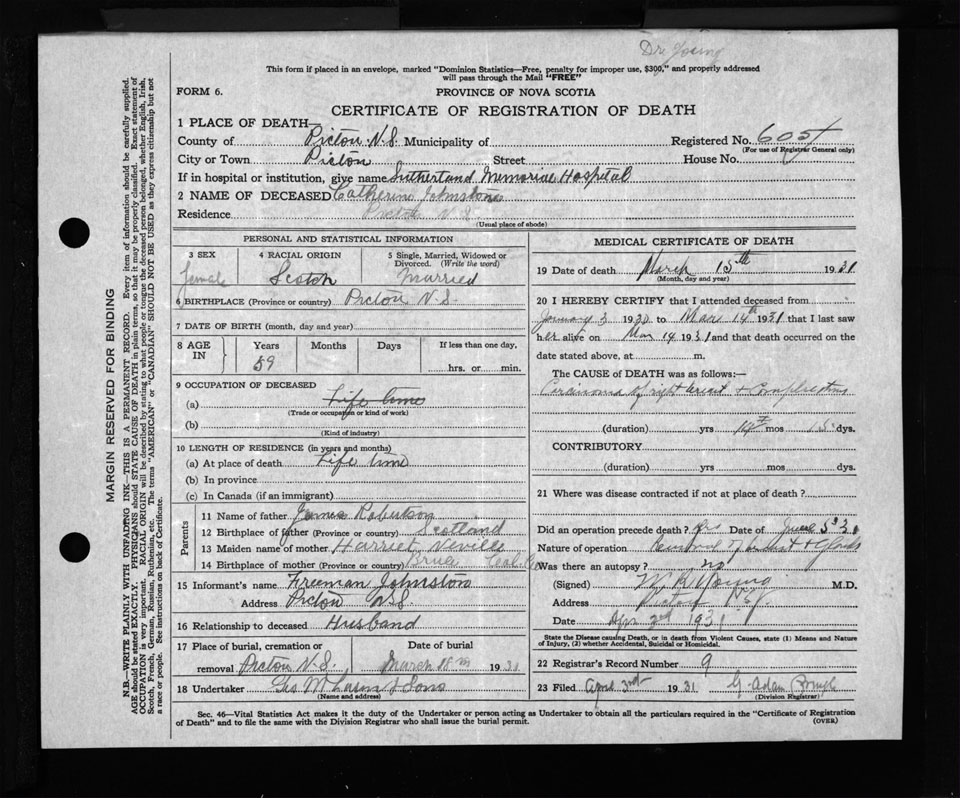 Dr Young
This form if placed in an envelope, marked "Dominion Statistics—Free, penalty for improper use, $300," and properly addressed
will pass through the Mail "FREE"
FORM 6.
PROVINCE OF NOVA SCOTIA
CERTIFICATE OF REGISTRATION OF DEATH
1 PLACE OF DEATH—
County of Pictou N.S. Municipality of Registered No. 605
(For use of Registrar General only)
City or Town Pictou Street House No.
If in hospital or institution, give name Sutherland Memorial Hospital
2 NAME OF DECEASED Catherine Johnstone
Residence Pictou N.S.
(Usual place of abode)
PERSONAL AND STATISTICAL INFORMATION
3 SEX 4 RACIAL ORIGIN 5 Single, Married, Widowed or
Divorced. (Write the word)
female Scotch Married
6 BIRTHPLACE (Province or country) Pictou N.S.
7 DATE OF BIRTH (month, day and year)
8 AGE IN Years Months Days If less than one day,
59 hrs. or min.
9 OCCUPATION OF DECEASED
(a) Life time
(Trade or occupation or kind of work)
(b)
(Kind of industry)
10 LENGTH OF RESIDENCE (in years and months)
(a) At place of death Life time
(b) In province
(c) In Canada (if an immigrant)
Parents
11 Name of father James Robertson
12 Birthplace of father (Province or country) Scotland
13 Maiden name of mother Harriet Neville
14 Birthplace of mother (Province or country)
15 Informant's name Freeman Johnston
Address Pictou N.S.
16 Relationship to deceased Husband
17 Place of burial, cremation or Date of burial
removal Pictou N.S. March 1931
18 Undertaker Geo & Sons
(Name and address)
MEDICAL CERTIFICATE OF DEATH
19 Date of death March 15th 1931
(Month, day and year)
20 I HEREBY CERTIFY that I attended deceased from
January 3 1930 to Mar 14th 1931 that I last saw
her alive on Mar 14 1931 and that death occurred on the
date stated above, at m.
The CAUSE OF DEATH was as follows:—
Carcinoma of right breast + Complications
(duration) yrs 14 mos 15 dys.
CONTRIBUTORY
(duration) yrs mos dys.
21 Where was disease contracted if not at place of death?
Did an operation precede death? Yes Date of June 5 30
Nature of operation Removal of breast + Glands
Was there an autopsy? no
(Signed) Young M.D.
Address Pictou N.S.
Date Apr 2nd 1931
State the Disease causing Death, or in death from Violent Causes, state (1) Means and Nature
of Injury, (2) whether Accidental, Suicidal or Homicidal.
22 Registrar's Record Number 9
23 Filed Apr 3rd 1931 G. Adam
(Division Registrar)
Sec. 46—Vital Statistics Act makes it the duty of the Undertaker or person acting as Undertaker to obtain all the particulars required in the "Certificate of Registration
of Death" and to file the same with the Division Registrar who shall issue the burial permit. (OVER)
MARGIN RESERVED FOR BINDING
N.B.—WRITE PLAINLY WITH UNFADING INK—THIS IS A PERMANENT RECORD. Every item of information should be carefully supplied.
AGE should be stated EXACTLY. PHYSICIANS should STATE CAUSE OF DEATH in plain terms, so that it may be properly classified. Exact statement of
OCCUPATION is very important. RACIAL ORIGIN will be described by stating to what people or tongue the deceased person belonged, whether English, Irish,
Scotch, French, German, Russian, Ruthenian, etc. The terms "AMERICAN" or "CANADIAN" SHOULD NOT BE USED as they express citizenship but not
a race or people. See instructions on back of Certificate.